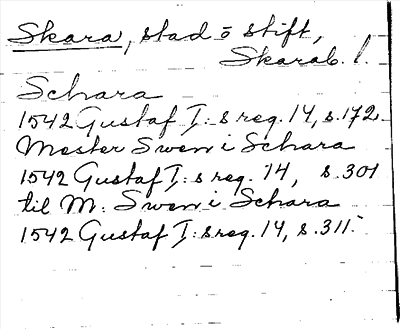 Skara, stad o stift,
Skarab. l.
Schara
1542 Gustaf I:s reg. 14, s. 172.
Mester Swen i Schara
1542 Gustaf I:s reg. 14, s. 301
til M. Swen i Schara
1542 Gustaf I:s reg. 14, s. 311.